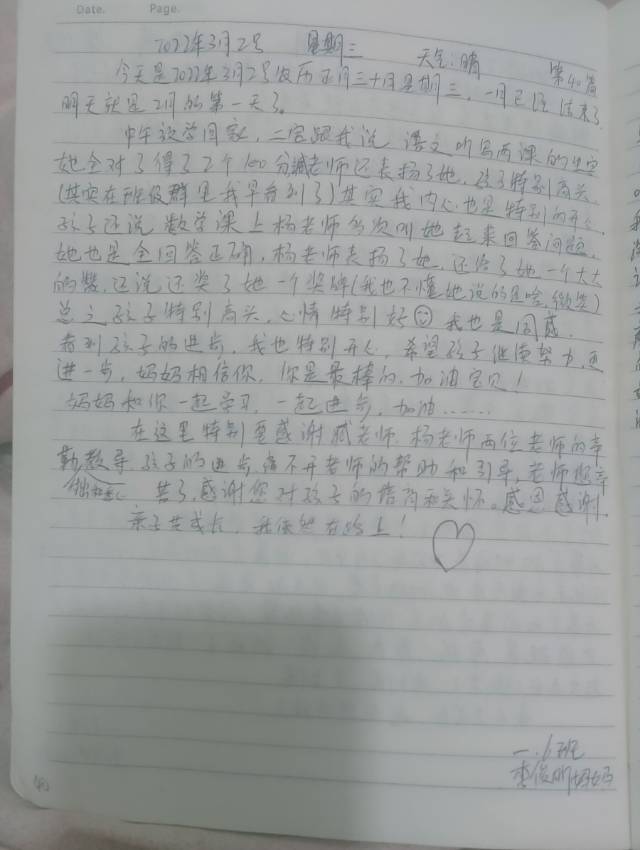 Date. Page.
2022年3月2号 星期三 天气:晴 第40篇
今天是2022年3月2号农历正月三十日星期三,一月已经结束了
明天就是2月的第一天了。
中午放学回家,二宝跟我说 语文听写两课的生字
她全对了得了2个100分臧老师还表扬了她,孩子特别高兴,
(其实在班级群里我早看到了)其实我内心也是特别的开心,
孩子还说数学课上杨老师多次叫她起来回答问题,
她也是全回答正确,杨老师表扬了她,还给了她一个大大
的赞,还说还奖了她一个奖牌(我也不懂她说的是啥,微笑)
总之孩子特别高兴,心情特别好 我也是同感,
看到孩子的进步,我也特别开心,希望孩子继续努力,更
进一步,妈妈相信你,你是最棒的,加油宝贝!
妈妈和你一起学习,一起进步,加油……
在这里特别至感谢臧老师.杨老师两位老师的辛
勤教导,孩子的进步,离不开老师的帮助和引导,老师您辛
苦了,感谢您对孩子的培育和关怀。感恩感谢,
亲子共成长,我依然在路上!
一.6班
李俊昕妈妈
40